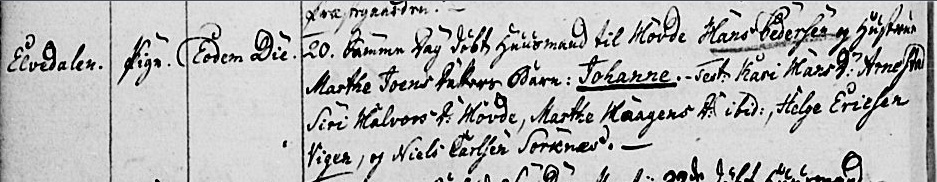 Elvedalen. Pige. Eodem Die. 20. Samme Dag døbt Huusmand til Hovde Hans Pedersen og Hustrue
Marthe Joens Datters Barn: Johanne. - Test: Kari Hans D:
Siri Halvors D: Hovde, Marthe Haagens D: ibid:, Helge Ericsen
Vigen, og Niels Carlsen Sorknæs. —